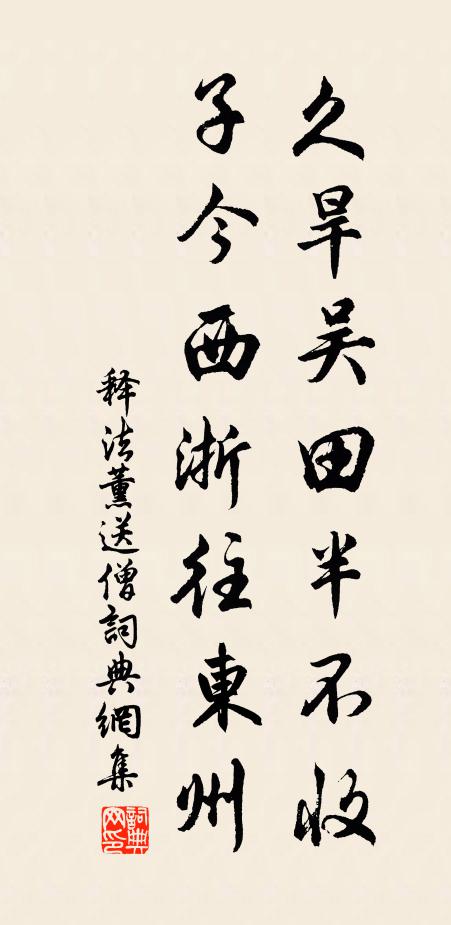 久旱吴田半不收
子今西浙往東州
释法薰送僧詞典網集
詞典網印